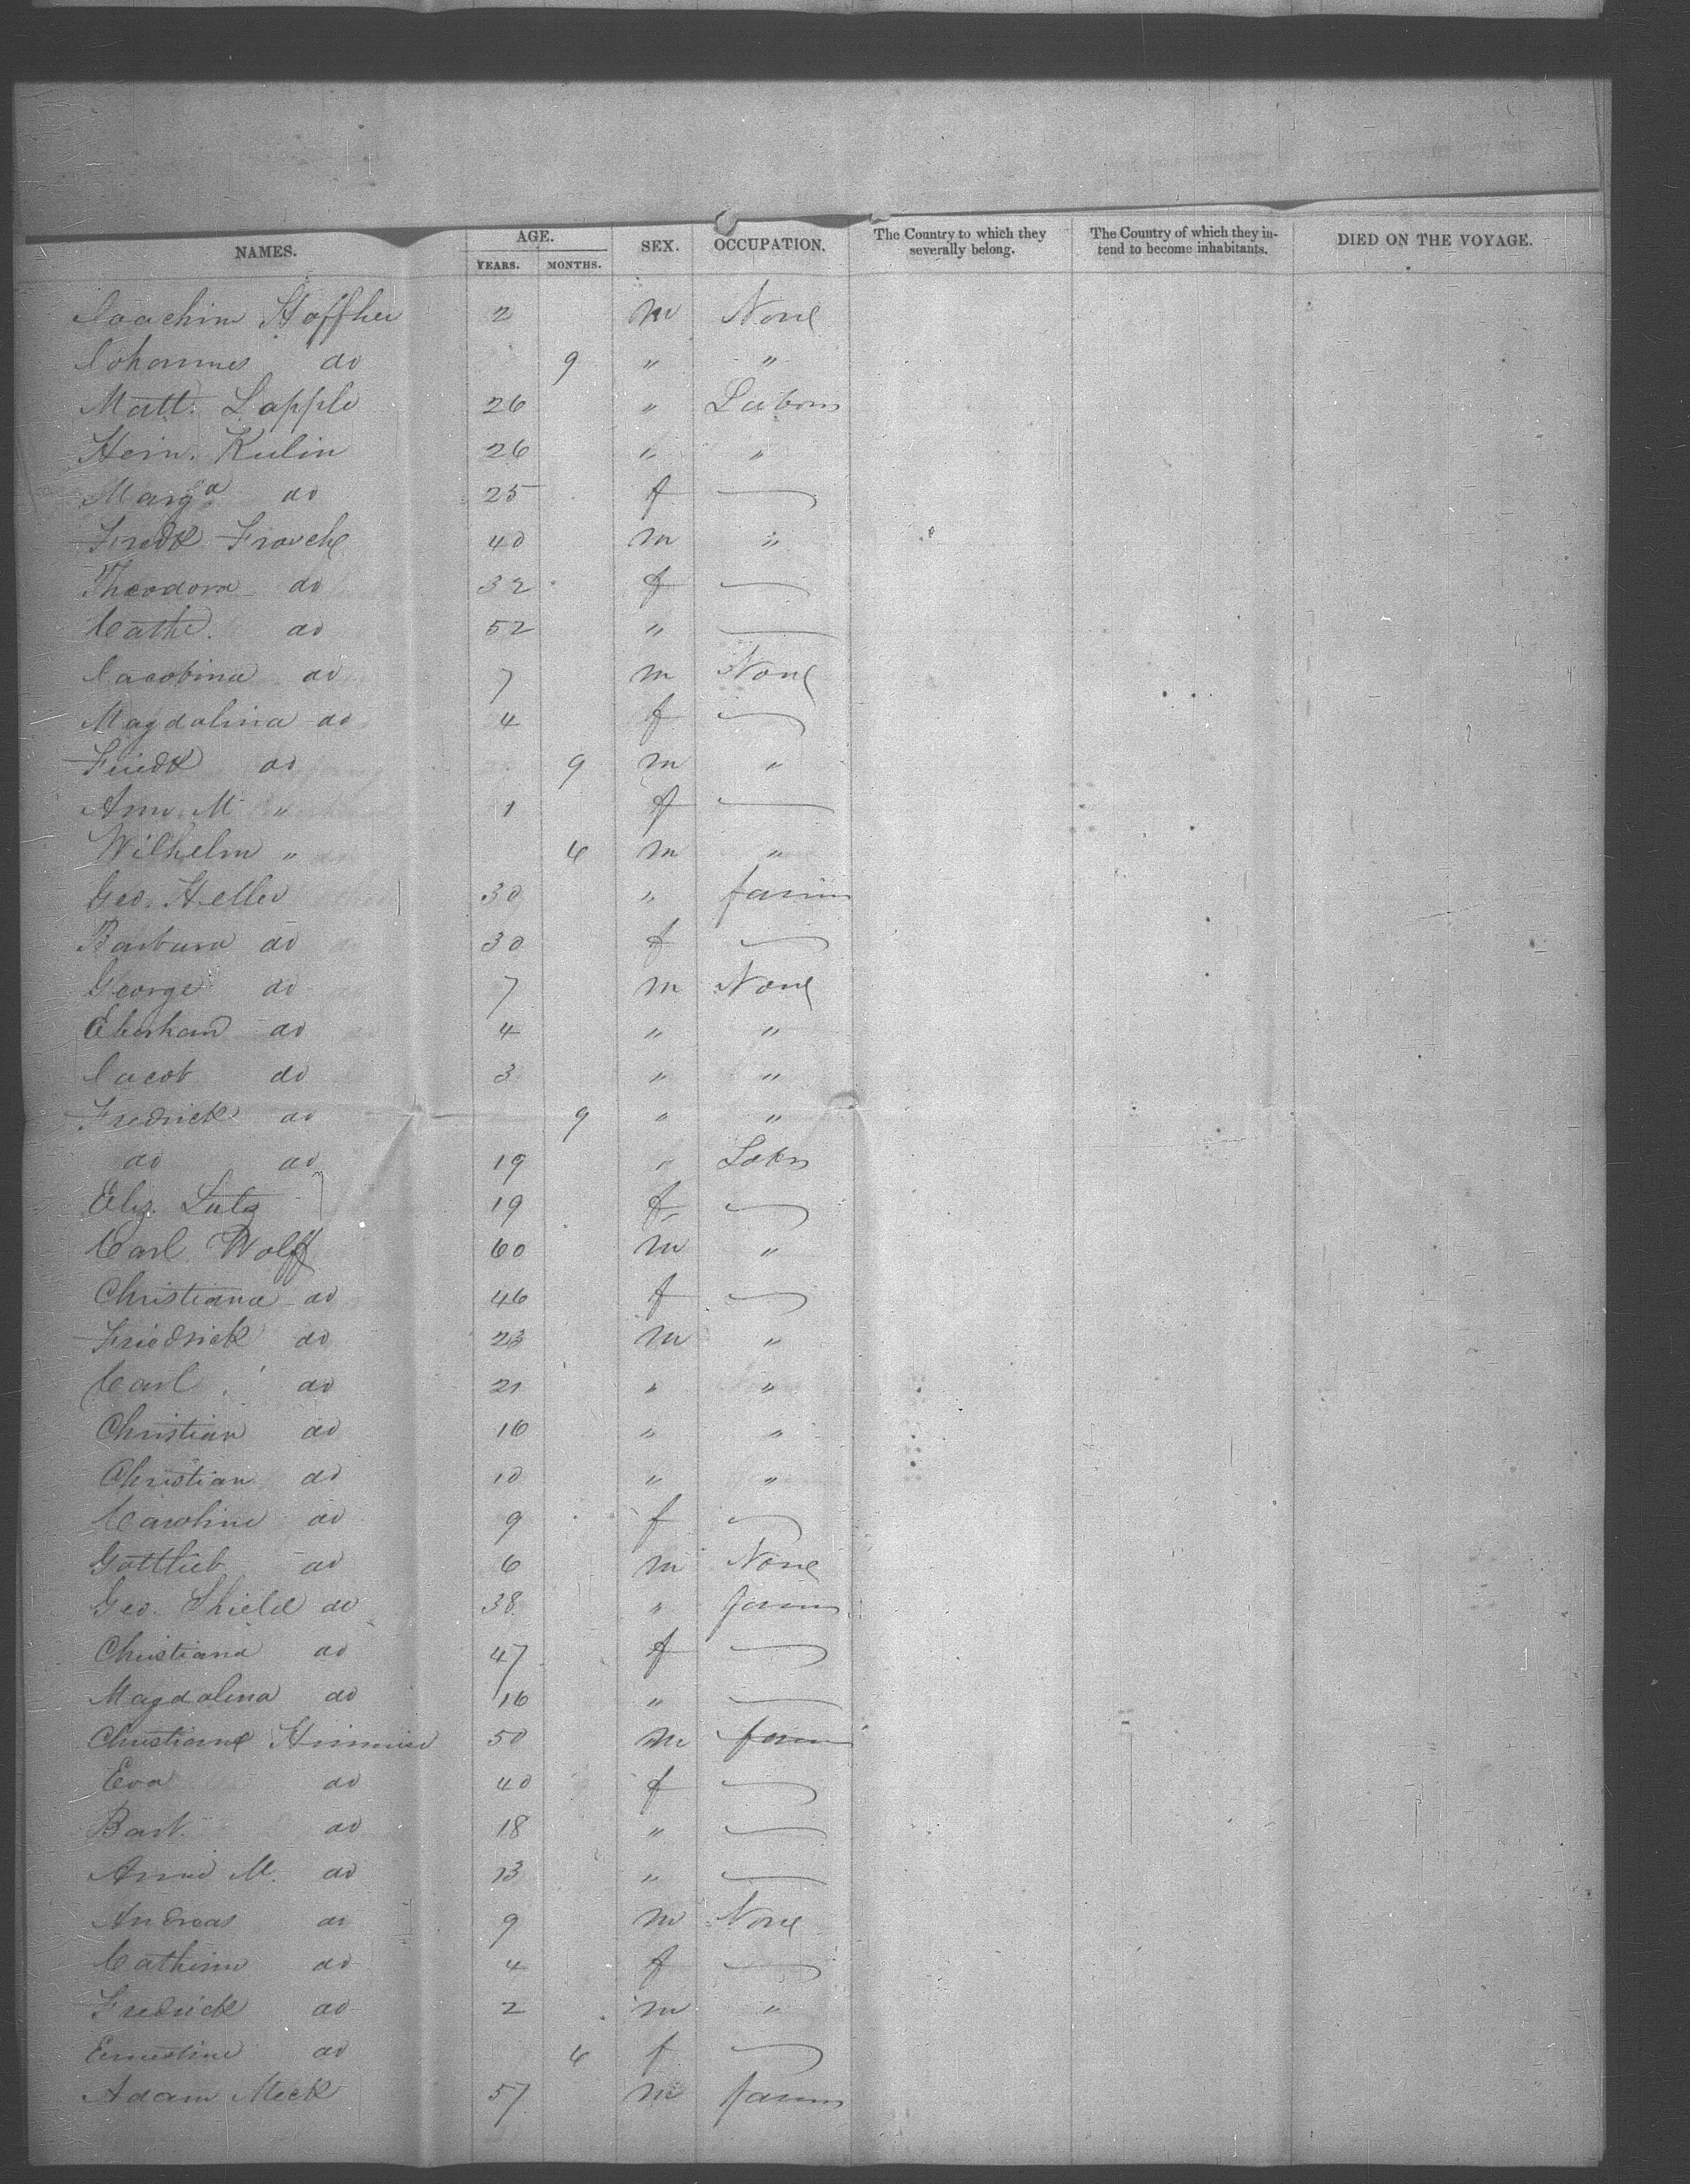 NAMES. AGE. YEARS. MONTHS. SEX. OCCUPATION. The Country to which they severally belong. The Country of which they intend to become inhabitants. DIED ON THE VOYAGE.
Joachim 2 m None
Johannes do 9 " "
Matt. Lapple 26 " Labor
Hein. Kulin 26 " "
Marga do 25 f —
Fredk 40 m "
Theodora do 32 f —
Cathe. do 52 " —
Jacobina do 7 m None
Magdalina do 4 f —
Friedk do 9 m "
Ann M " 1 f —
Wilhelm " 6 m "
Geo. Heller 30 " farm
Barbara do 30 f —
George do 7 m None
Eberhard do 4 " "
Jacob do 3 " "
Fredrick do 9 " "
do do 19 " Labr
Eliz. Lutz 19 f —
Carl Wolff 60 m "
Christiana do 46 f —
Friedrick do 23 m "
Carl do 21 " "
Christian do 16 " "
Christian do 10 " "
Caroline do 9 f —
Gottlieb do 6 m None
Geo. Shield do 38 " farm
Christiana do 47 f —
Magdalena do 16 " —
Christiane 50 m farm
Eva do 40 f —
Barb. do 18 " —
Anna M. do 13 " —
Andreas do 9 m None
Catherine do 4 f —
Fredrick do 2 m "
Ernestine do 6 f —
Adam Meck 57 m farm